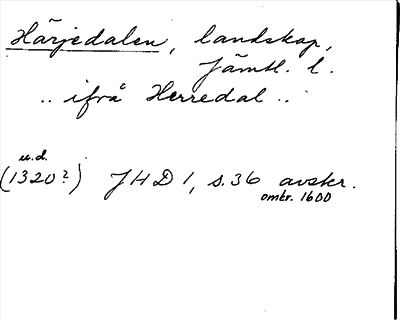 Härjedalen, landskap,
Jämtl. l.
.. ifrå Herredal ..
u.d.
(1320?) JHD 1, s. 36 avskr.
omkr. 1600